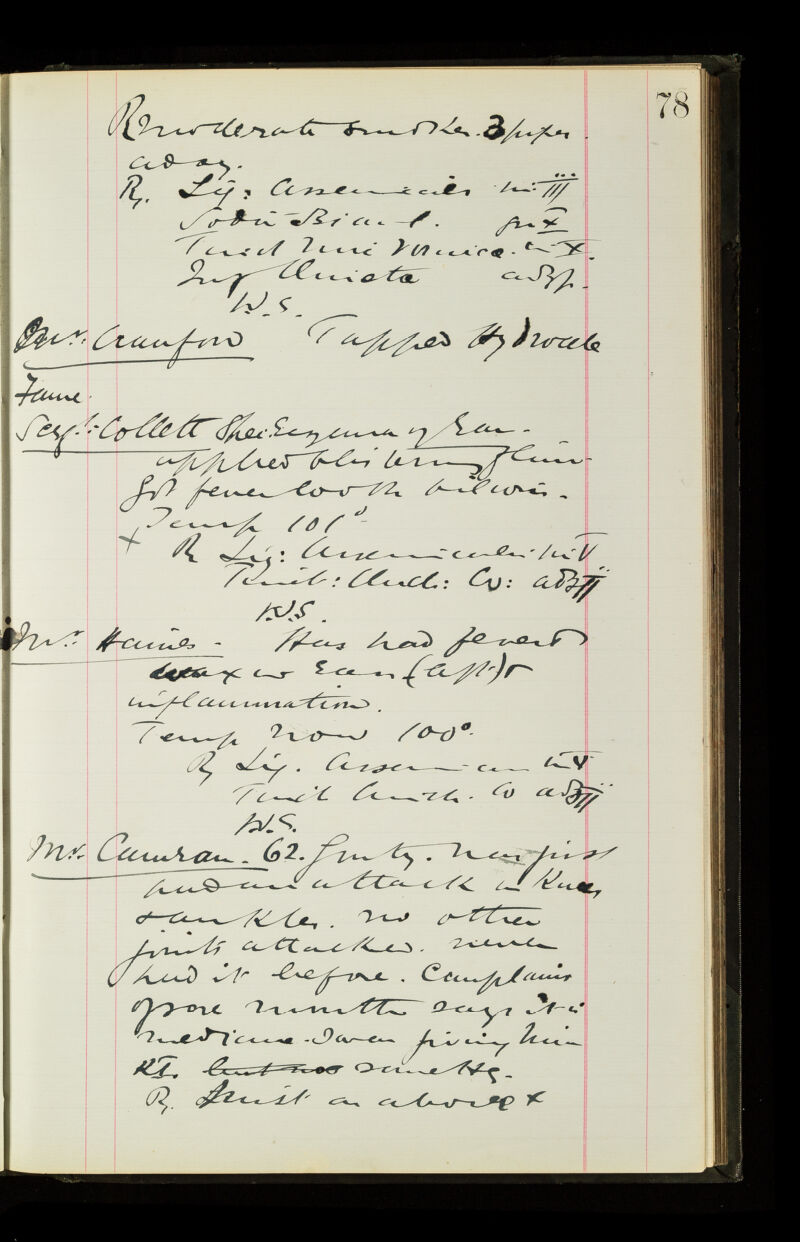 78
moderate smoker. 3 pipes
a day.
R. Liq: Arsenicalis m: III
Sodii Bicarb. gr X
Tinct Nuci Vomica. m X.
Inf
W.S.
Mr. Crauford Tapped Hydrocele
Same.
Sergt: Collett Eczema of Ear.
applied blistering fluid
Got fever looks bilious.
Temp 101°
+ R Liq: Arsenicalis m V
Tinct: Co: ad ℥II
W.S.
Mr. Haines - Has had fever &
wax in Ears (left) &
inflammation.
Temp now 100°.
R Liq. Arsenican m V
Tinct Co ad ℥II
W.S.
Mr. Camran. 62. Gouty. has just
had an attack in Knees
& ankles. no other
joints attacked. never
had it before. Complains
of sore mouth says it is
medicine. I was giving him
KI. but not some Hg.
R. Mist as above +